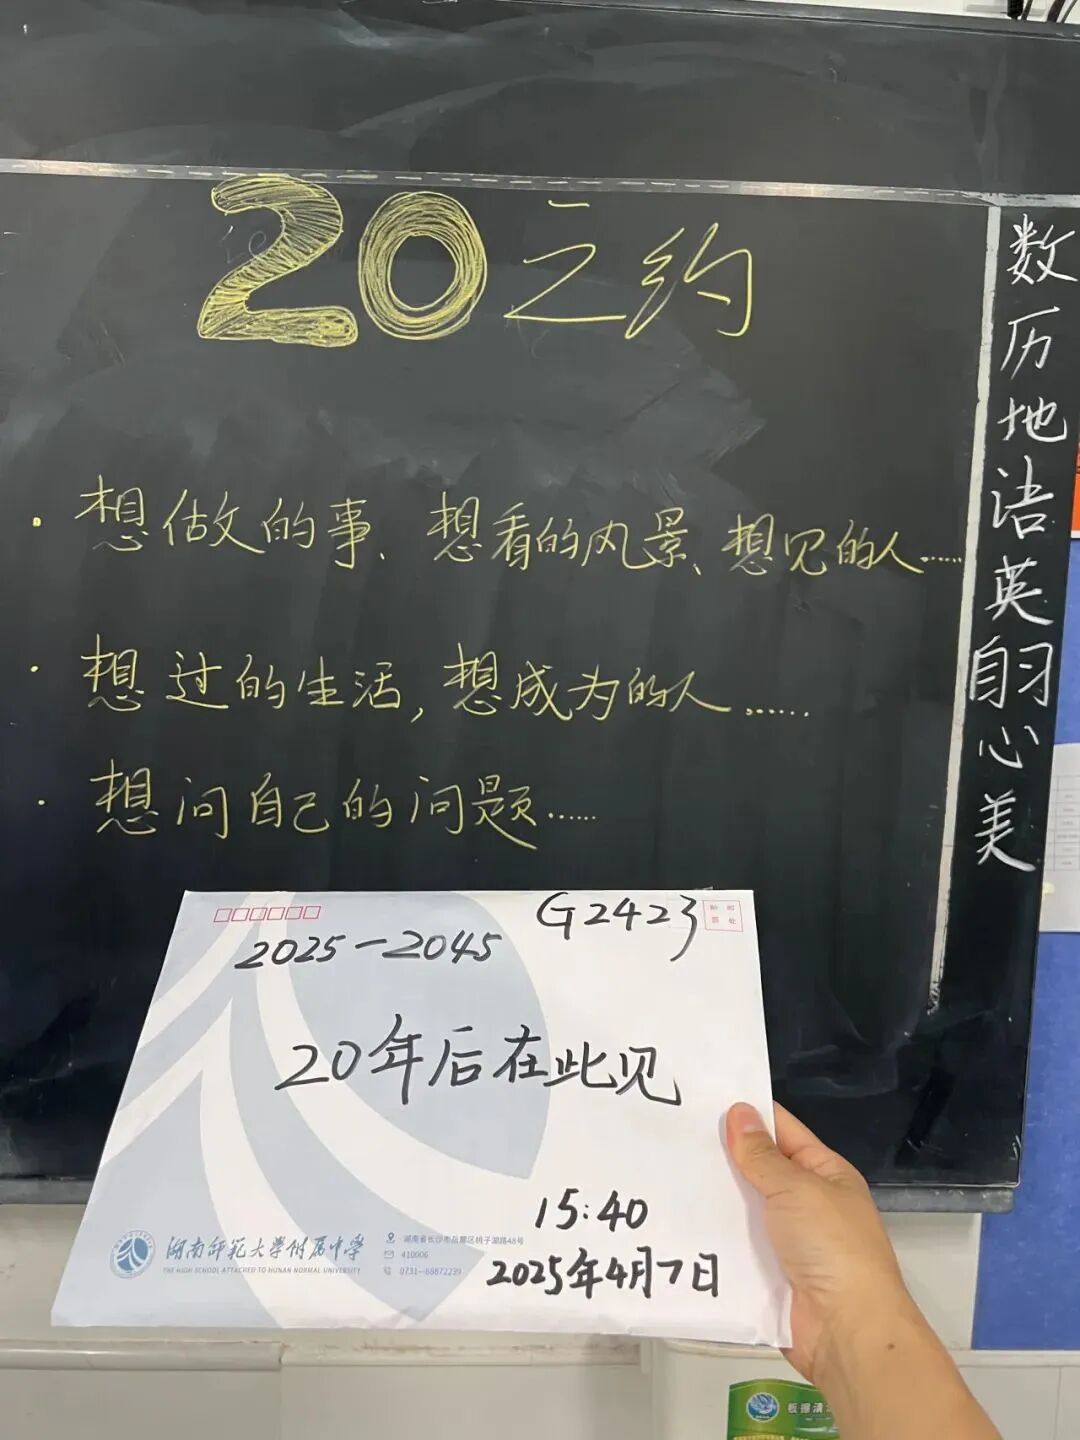 20之约
· 想做的事、想看的风景、想见的人……
· 想过的生活，想成为的人……
· 想问自己的问题……
数
历
地
语
英
自习
心
美
G2423
邮票
2025-2045
20年后在此见
15:40
2025年4月7日
湖南师范大学附属中学
THE HIGH SCHOOL ATTACHED TO HUNAN NORMAL UNIVERSITY
湖南省长沙市岳麓区桃子湖路48号
410006
0731-88872239
板擦清